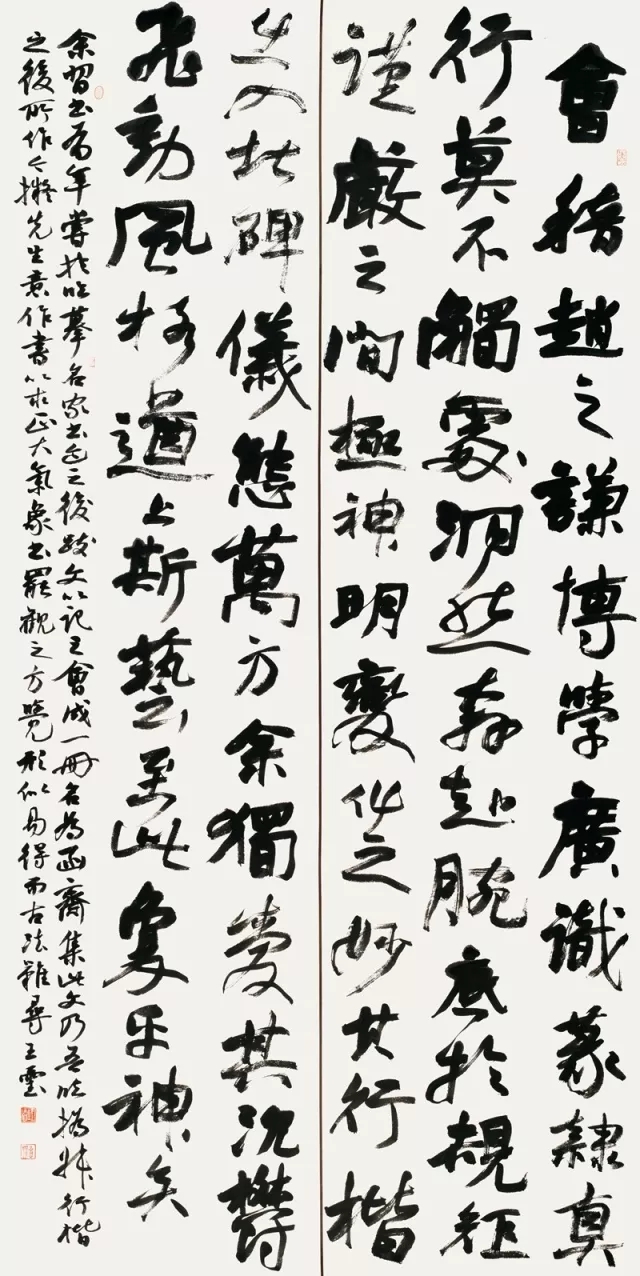 會稽趙之謙博學廣識篆隸真
行莫不觸處洞然奔赴腕底於規矩
謹嚴之間極神明變化之妙其行楷
出入北碑儀態萬方余獨愛其沉鬱
飛動風格遒上斯藝至此乎神矣
余習書有年嘗於臨摹名家書迹之後跋文以記之會成一冊名為函齋集此文乃吾臨撝叔行楷
之後所作今擬先生意作書以求正大氣象書罷觀之方覺形似易得而古法難尋王雲